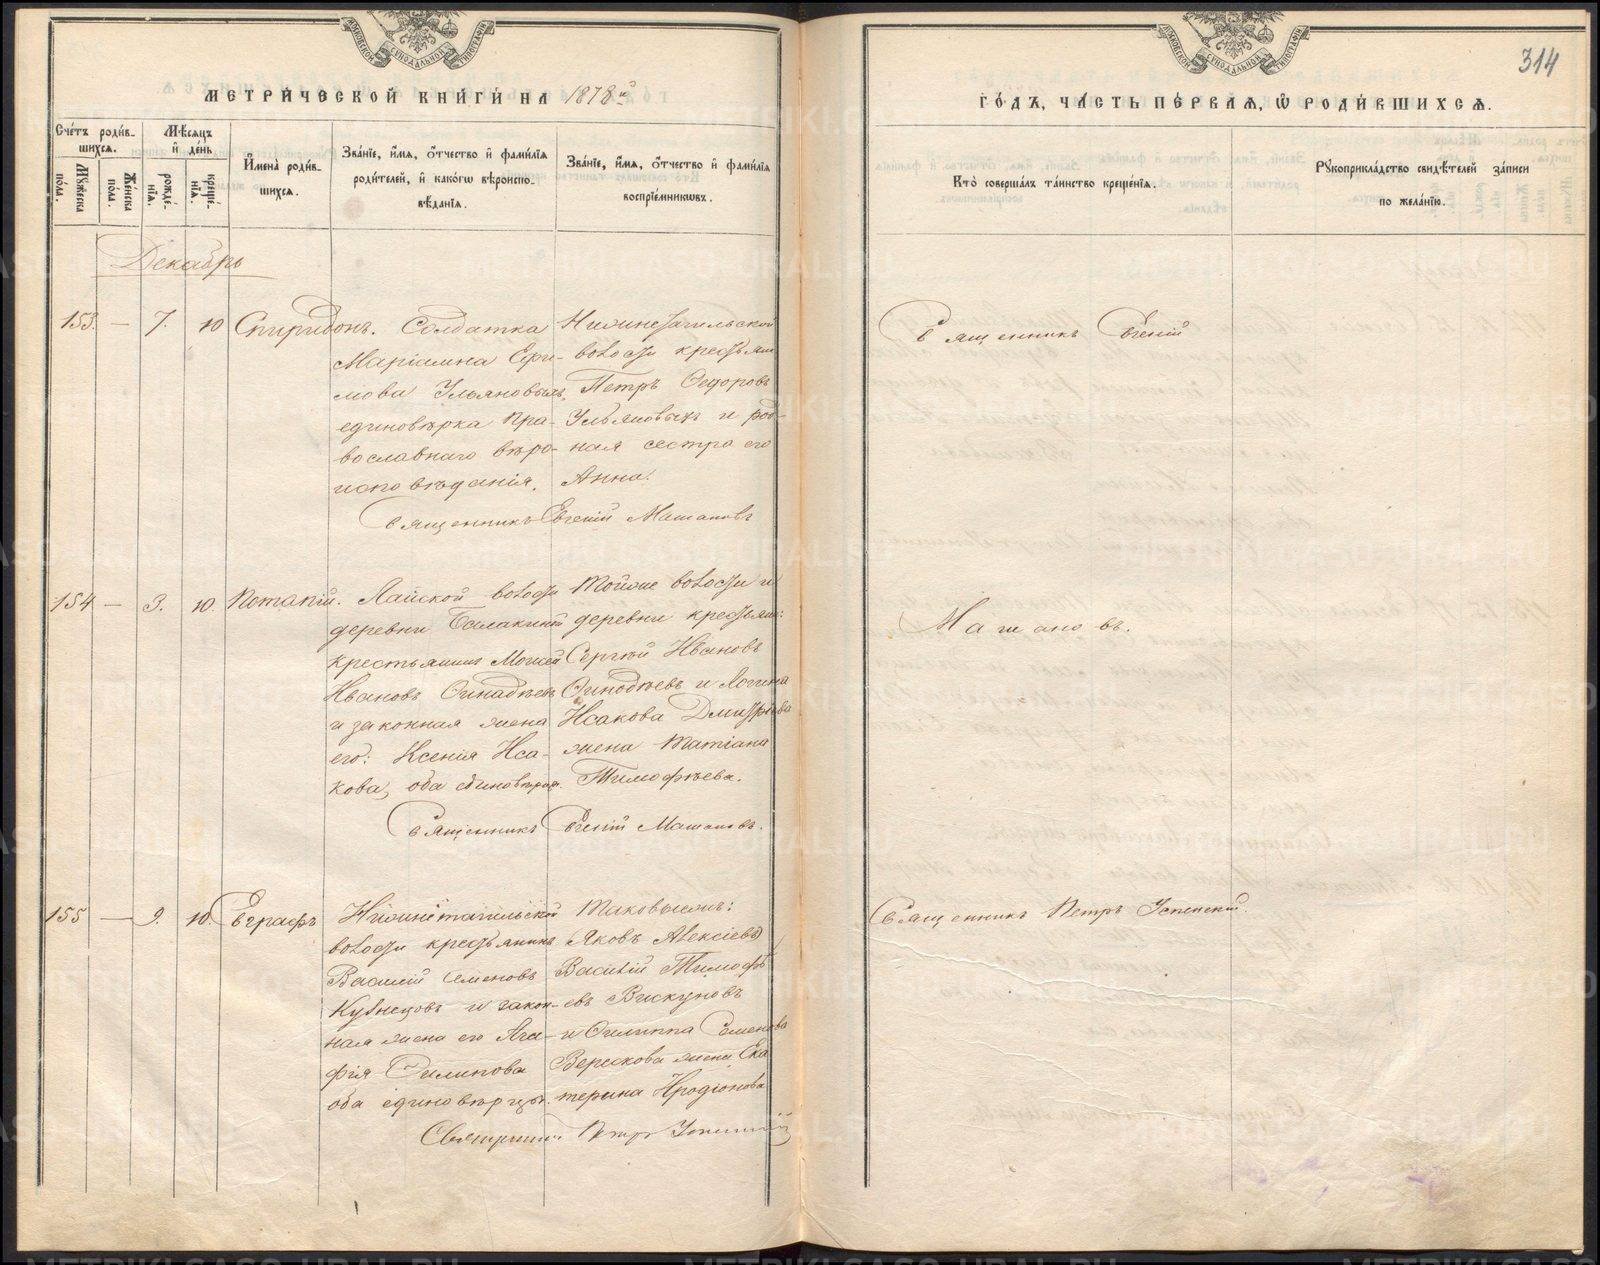 МЕТРИ́ЧЕСКОЙ КНИ́ГИ НА 1878й
ГО́ДЪ, ЧА́СТЬ ПЕ́РВАЯ, Ѿ РОДИ́ВШИХСЯ.
314
Сче́тъ роди́в-шихся.
Мѣ́сяцъ и де́нь
Му́жеска по́ла.
Же́нска по́ла.
рожде́нїя.
креще́нїя.
И҆мена̀ роди́вшихся.
Зва́нїе, и҆́мя, о҆́тчество и҆ фами́лїя
роди́телей, и҆ како́гѡ вѣроиспо-
вѣ́данїя.
Зва́нїе, и҆́мя, о҆́тчество и҆ фами́лїя
воспрїе́мникѡвъ.
Кто̀ соверша́лъ та́инство креще́нїя.
Рꙋкоприкла́дство свидѣ́телей за́писи
по жела́нїю.
Декабрь
153. — 7. 10 Спиридонъ.
Солдатка
Маріамна Ефи-
мова Ульяновыхъ,
единовѣрка пра-
вославнаго вѣро-
исповѣданія.
Нижнетагильской
волости крестьянин
Петръ Ѳедоровъ
Ульяновыхъ и род-
ная сестра его
Анна.
Священникъ Евгеній
Священникъ Евгеній Машановъ
154 — 3. 10. Потапій.
Лайской волости
деревни Балакиной
крестьянинъ Моисей
Ивановъ
и законная жена
его: Ксенія Иса-
кова, оба единовѣрцы.
Тойже волости и
деревни крестьян:
Сергѣй Ивановъ
и Логина
Исакова Дмитріева
жена Татіана
Тимофѣева.
Машановъ.
Священникъ Евгеній Машановъ.
155 — 9. 10. Евграфъ
Нижнетагильской
волости крестьянинъ
Василій Семеновъ
Кузнецовъ и закон-
ная жена его Ага-
фія Филипова
оба единовѣрцы.
Таковыежъ:
Яковъ Алексіевъ
Василій Тимофѣ-
евъ Вискуновъ
и Филиппа Семенова
Верескова жена Ека
терина Иродіонова
Священникъ Петръ Успенскій.
Священникъ Петръ Успенскій